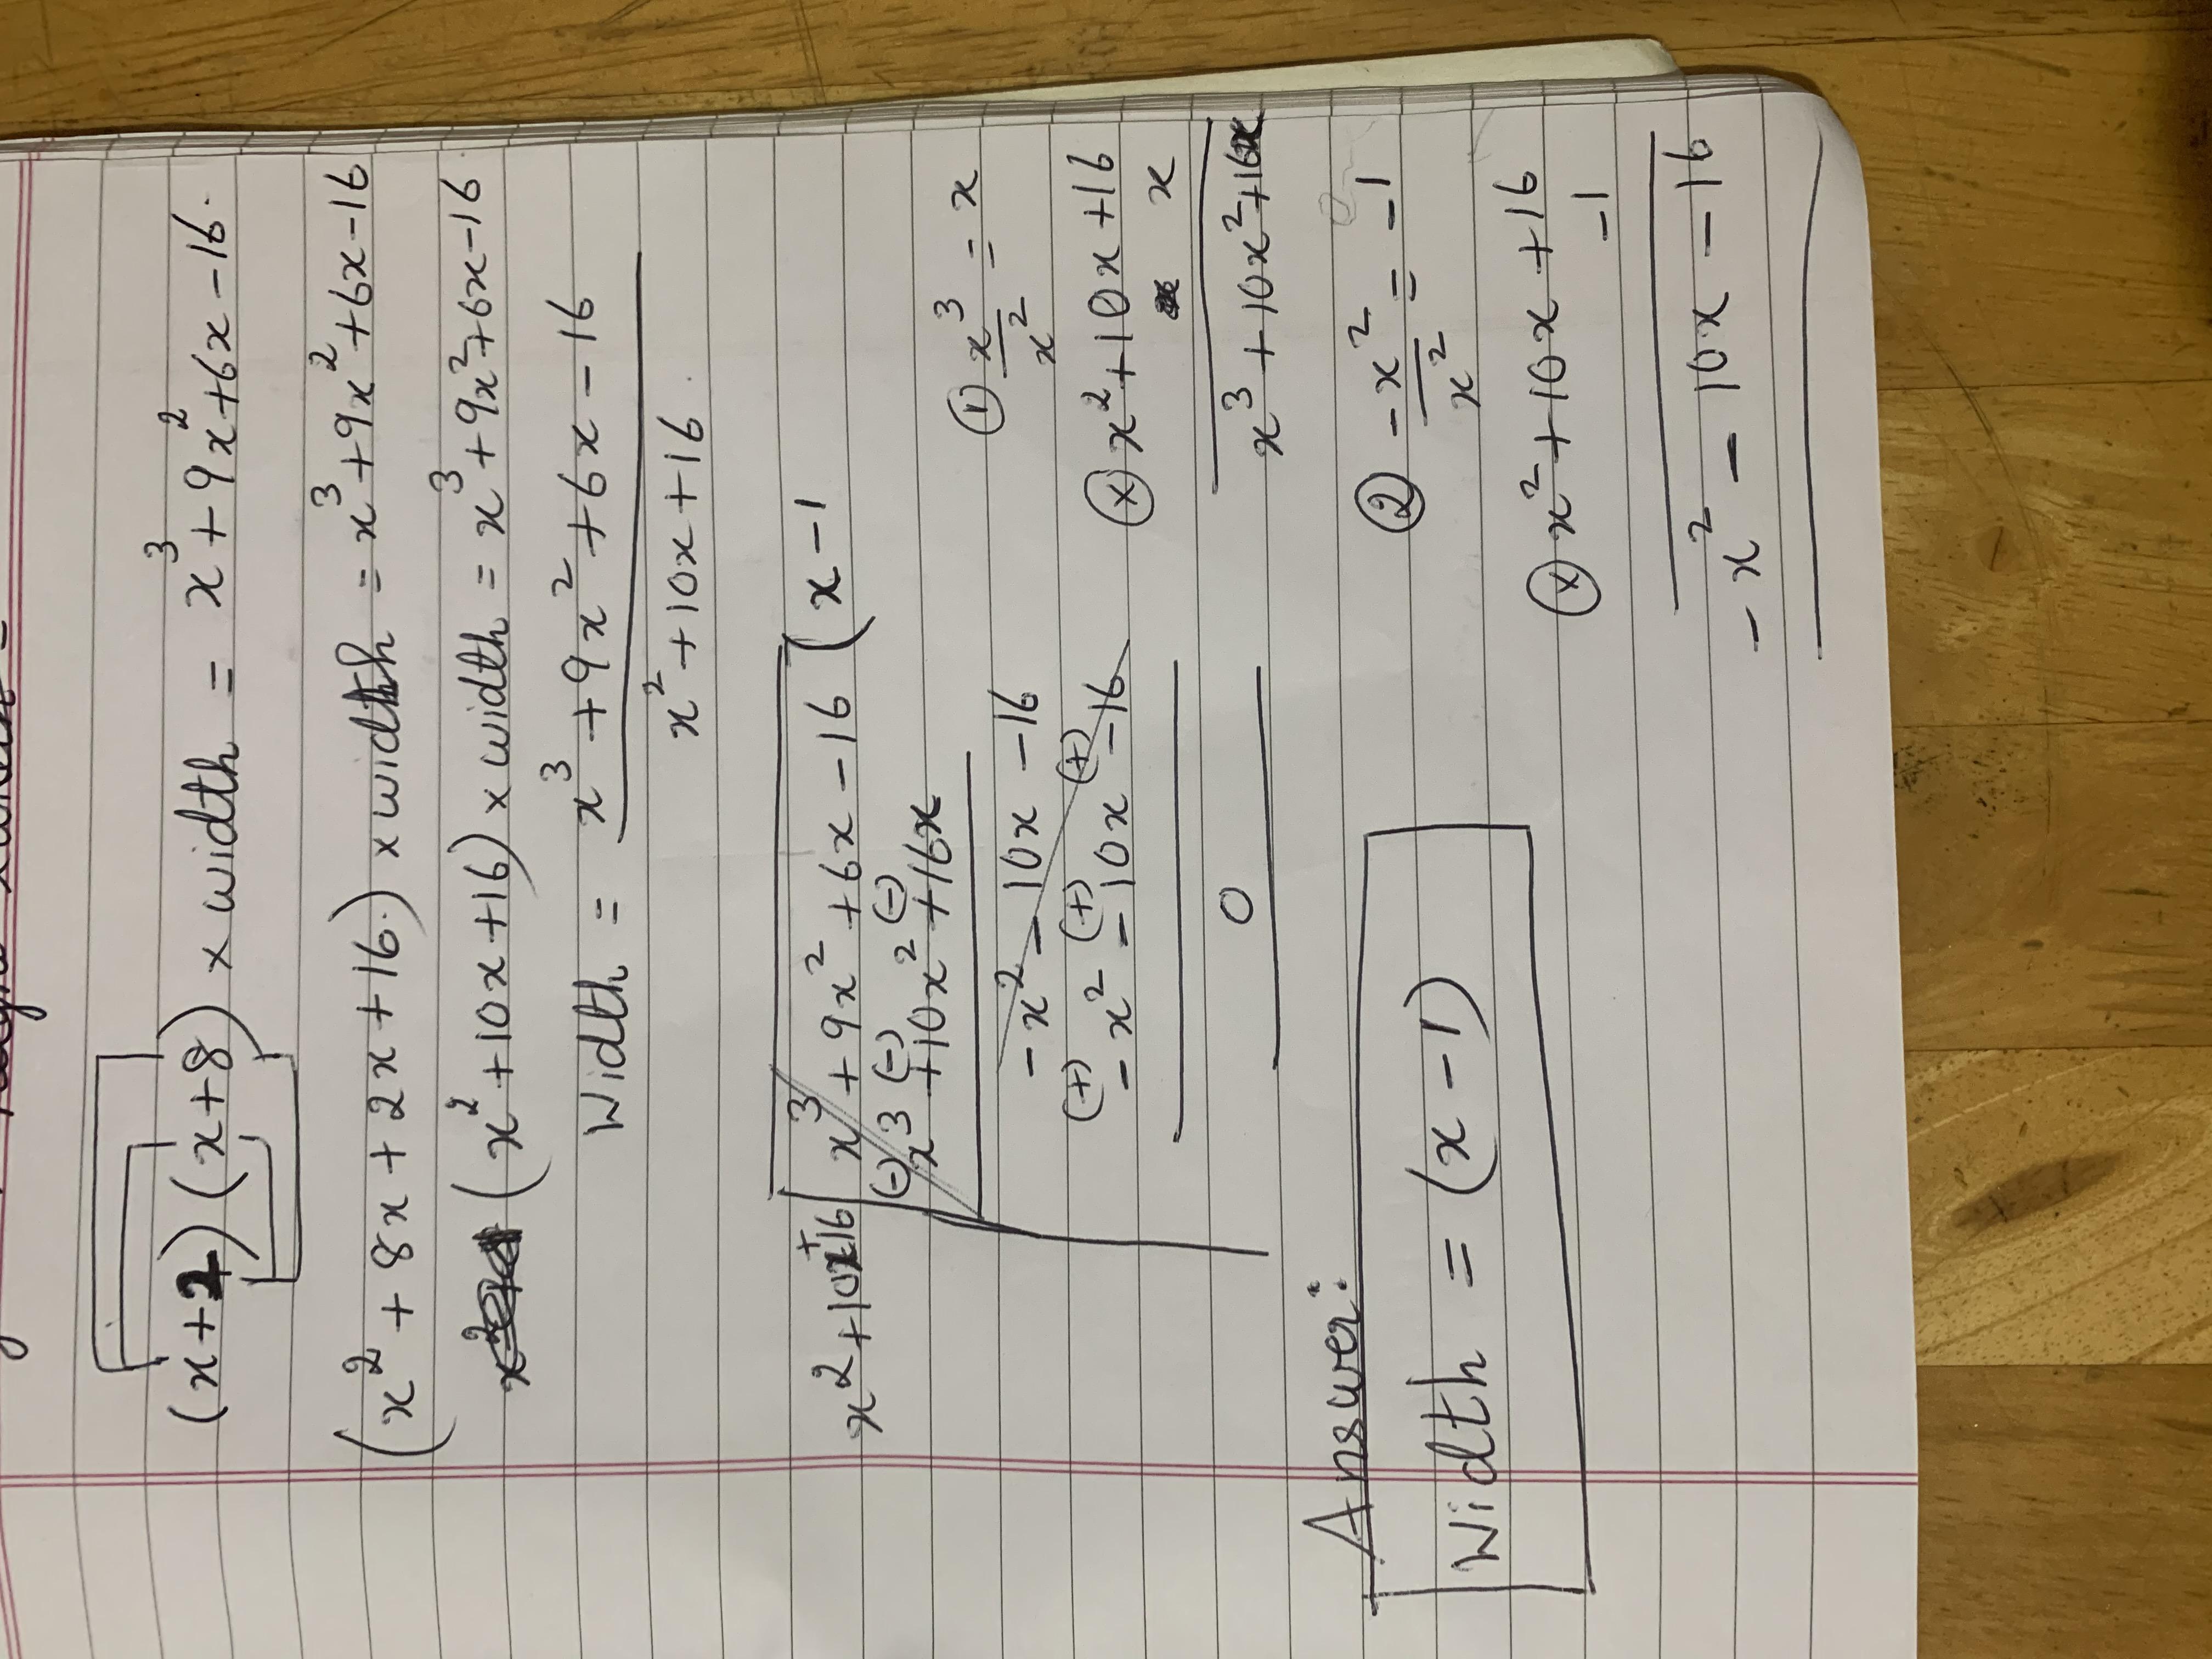 (x+2)(x+8) x width = x³+9x²+6x-16.
(x²+8x+2x+16.) x width = x³+9x²+6x-16
(x²+10x+16) x width = x³+9x²+6x-16.
Width = x³+9x²+6x-16
x²+10x+16.
x²+10x+16 x³+9x²+6x-16 (x-1
(-) (-) (-)
x³+10x²+16x
-x²-10x-16
(+) (+) (+)
-x²-10x-16
0
① x³ = x
x²
ⓧ x²+10x+16
x
x³+10x²+16x
② -x² = -1
x²
ⓧ x²+10x+16
-1
-x²-10x-16
Answer:
Width = (x-1)